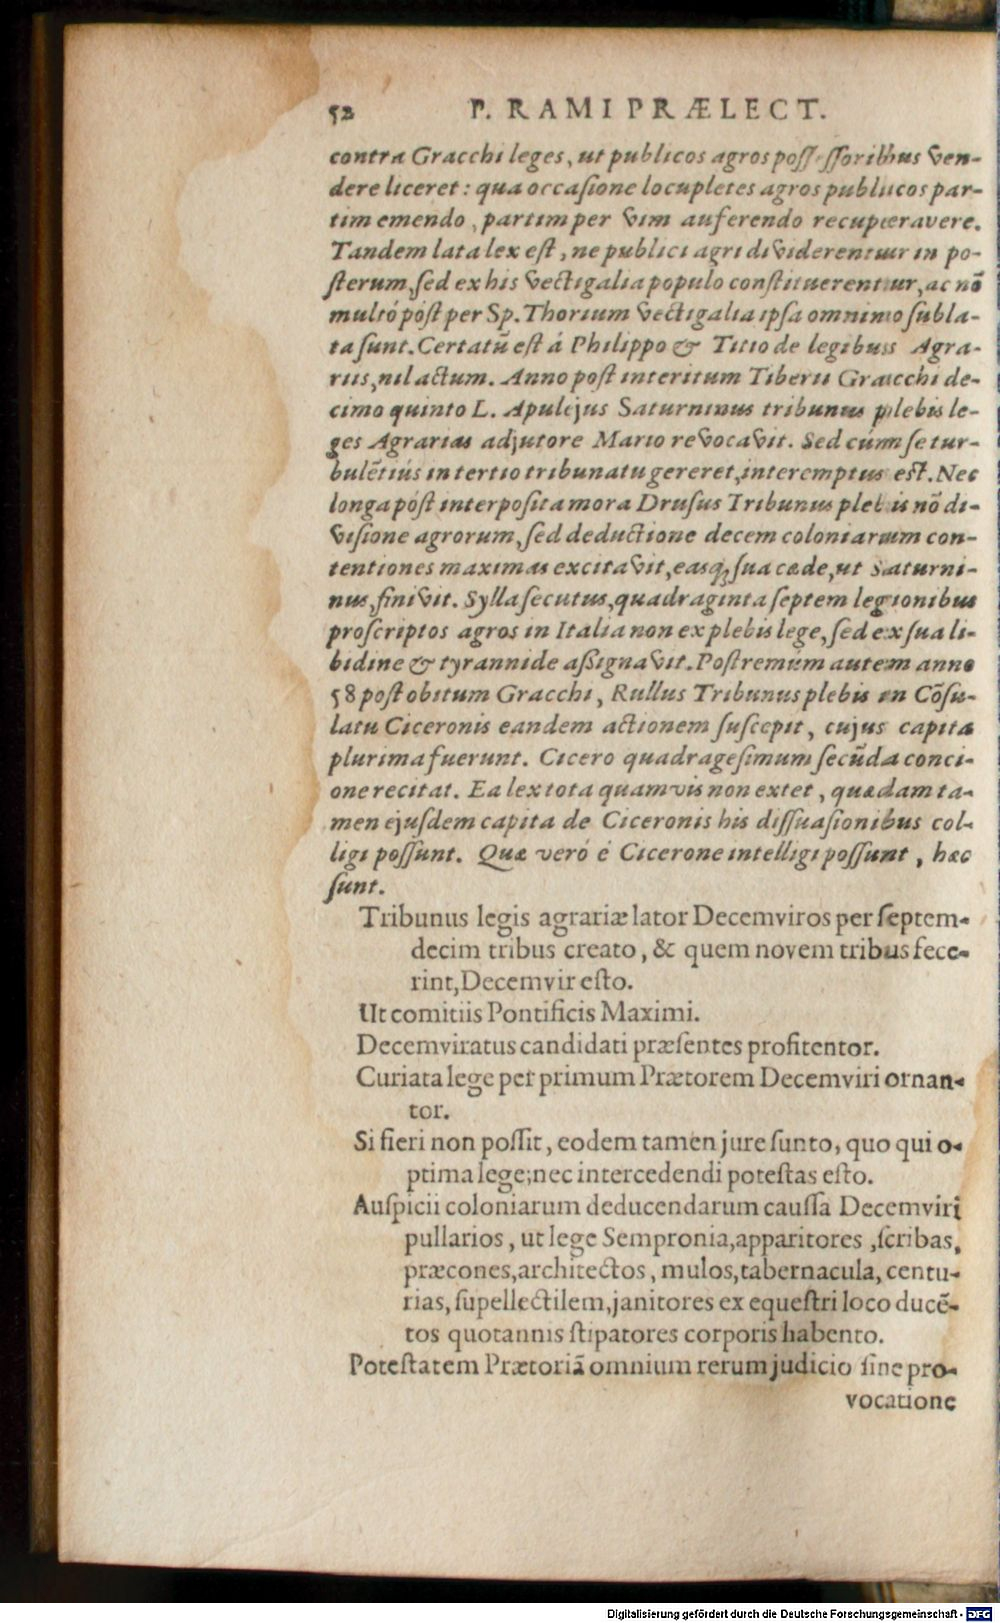 52 P. RAMI PRÆLECT.
contra Gracchi leges, ut publicos agros possessoribus ven-
dere liceret: qua occasione locupletes agros publicos par-
tim emendo, partim per vim auferendo recuperavere.
Tandem lata lex est, ne publici agri dividerentur in po-
sterum, sed ex his vectigalia populo constituerentur, ac nõ
multò pòst per Sp. Thorium vectigalia ipsa omnino subla-
ta sunt. Certatũ est á Philippo & Titio de legibus Agra-
riis, nil actum. Anno post interitum Tiberii Gracchi de-
cimo quinto L. Apulejus Saturninus tribunus plebis le-
ges Agrarias adjutore Mario revocavit. Sed cúm se tur-
bulẽtiús in tertio tribunatu gereret, interemptus est. Nec
longa póst interposita mora Drusus Tribunus plebis nõ di-
visione agrorum, sed deductione decem coloniarum con-
tentiones maximas excitavit, easq́; sua cæde, ut Saturni-
nus, finivit. Sylla secutus, quadraginta septem legionibus
proscriptos agros in Italia non ex plebis lege, sed ex sua li-
bidine & tyrannide assignavit. Postremùm autem anno
58 post obitum Gracchi, Rullus Tribunus plebis in Cõsu-
latu Ciceronis eandem actionem suscepit, cujus capita
plurima fuerunt. Cicero quadragesimum secũda conci-
one recitat. Ea lex tota quamvis non extet, quædam ta-
men ejusdem capita de Ciceronis his dissuasionibus col-
ligi possunt. Quæ veró é Cicerone intelligi possunt, hæc
sunt.
Tribunus legis agrariæ lator Decemviros per septem-
decim tribus creato, & quem novem tribus fece-
rint, Decemvir esto.
Ut comitiis Pontificis Maximi.
Decemviratus candidati præsentes profitentor.
Curiata lege per primum Prætorem Decemviri ornan-
tor.
Si fieri non possit, eodem tamen jure sunto, quo qui o-
ptima lege; nec intercedendi potestas esto.
Auspicii coloniarum deducendarum caussa Decemviri
pullarios, ut lege Sempronia, apparitores, scribas,
præcones, architectos, mulos, tabernacula, centu-
rias, supellectilem, janitores ex equestri loco ducẽ-
tos quotannis stipatores corporis habento.
Potestatem Prætoriã omnium rerum judicio sine pro-
vocatione
Digitalisierung gefördert durch die Deutsche Forschungsgemeinschaft - DFG